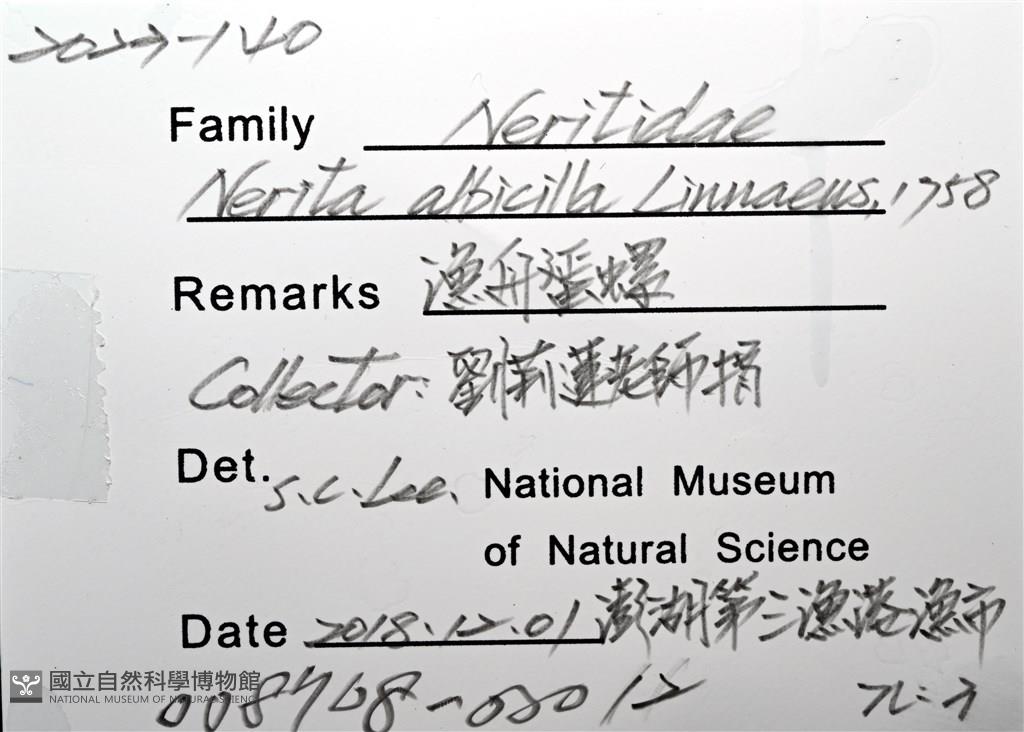 2022-140
Family Neritidae
Nerita albicilla Linnaeus, 1758
Remarks 漁舟蜑螺
Collector: 劉莉蓮老師捐
Det. S.C. Lee.
National Museum
of Natural Science
Date 2018.12.01 澎湖第三漁港漁市
國立自然科學博物館
NATIONAL MUSEUM OF NATURAL SCIENCE
008708-00012